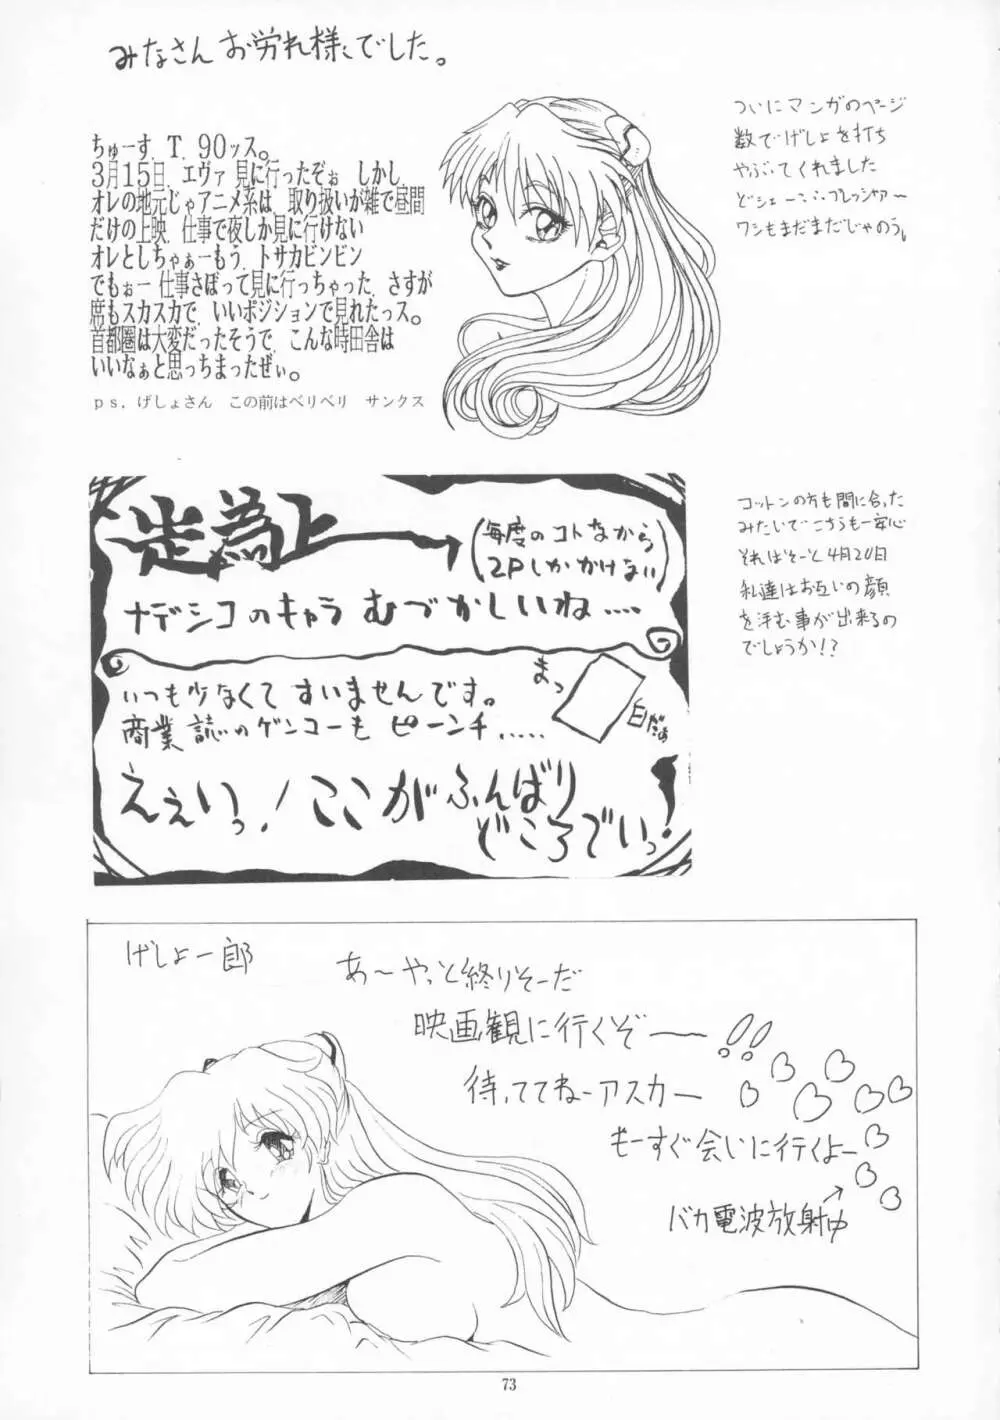 みなさん お労れ様でした。
ちゅーす. T. 90ッス。
3月15日. エヴァ 見に行ったぞぉ しかし.
オレの地元じゃアニメ系は. 取り扱いが雑で昼間
だけの上映. 仕事で夜しか見に行けない
オレとしちゃぁーもう. トサカビンビン
でもぉー 仕事さぼって見に行っちゃった. さすが
席もスカスカで. いいポジションで見れたっス。
首都圏は大変だったそうで. こんな時田舎は
いいなぁと思っちまったぜぃ。
ps. げしょさん この前はベリベリ サンクス
ついにマンガのページ
数でげしょを打ち
やぶってくれました
どシェー∴∴プレッシャァ〜
ワシもまだまだじゃのう。
走為上
(毎度のコトながら
2Pしかかけない)
ナデシコのキャラ むづかしいね....
いつも少なくて すいませんです。
商業誌のゲンコーも ピーンチ.....
まっ
白だぁ
えぇいっ! ここがふんばり
どころでいっ!
コットンの方も間に合った
みたいで こちらも一安心
それはそーと 4月20日
私達はお互いの顔
を拝む事が出来るの
でしょうか!?
げしょ一郎
あ〜やっと終りそーだ
映画観に行くぞー!!
待っててねーアスカー
もーすぐ会いに行くよー
バカ電波放射中
73